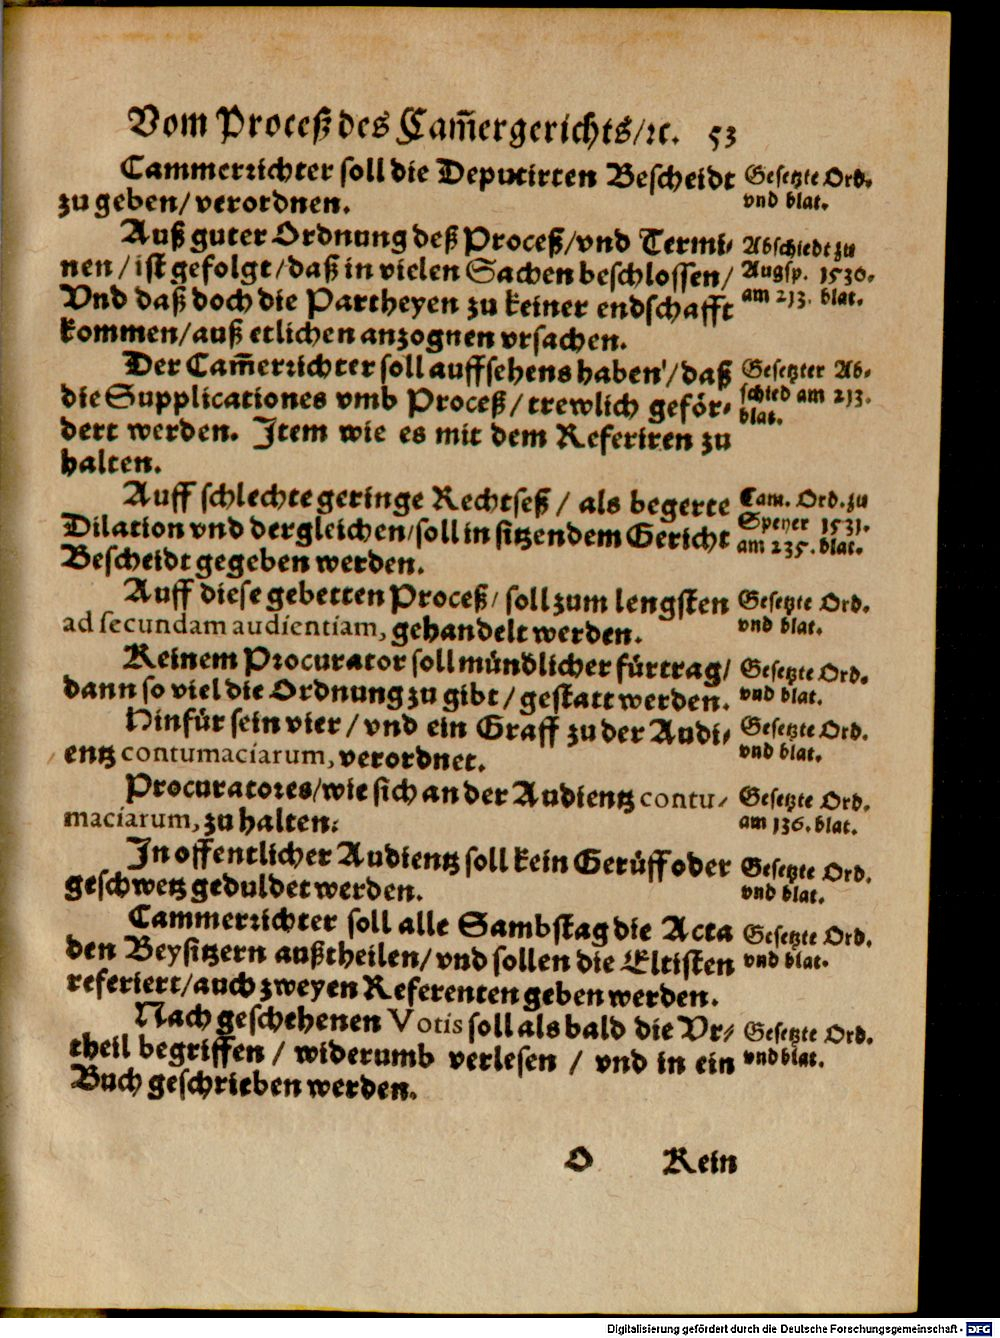 Vom Proceß des Cam̃ergerichts/ꝛc. 53
Cammerrichter soll die Deputirten Bescheidt
zu geben/ verordnen.
Gesetzte Ord.
vnd blat.
Auß guter Ordnung deß Proceß/vnd Termi⸗
nen/ ist gefolgt/ daß in vielen Sachen beschlossen/
Vnd daß doch die Partheyen zu keiner endschafft
kommen/ auß etlichen anzognen vrsachen.
Abschiedt zu
Augsp. 1530.
am 213. blat.
Der Cam̃errichter soll auffsehens haben/ daß
die Supplicationes vmb Proceß/ trewlich geför⸗
dert werden. Item wie es mit dem Referiren zu
halten.
Gesetzter Ab⸗
schied am 213.
blat.
Auff schlechte geringe Rechtseß/ als begerte
Dilation vnd dergleichen/soll in sitzendem Gericht
Bescheidt gegeben werden.
Cam. Ord. zu
Speyer 1531.
am 235. blat.
Auff diese gebetten Proceß/ soll zum lengsten
ad secundam audientiam, gehandelt werden.
Gesetzte Ord.
vnd blat.
Keinem Procurator soll mündlicher fürtrag/
dann so viel die Ordnung zu gibt/ gestatt werden.
Gesetzte Ord.
vnd blat.
Hinfür sein vier/ vnd ein Graff zu der Audi⸗
entz contumaciarum, verordnet.
Gesetzte Ord.
vnd blat.
Procuratores/wie sich an der Audientz contu⸗
maciarum, zu halten.
Gesetzte Ord.
am 136. blat.
In offentlicher Audientz soll kein Gerüff oder
geschwetz geduldet werden.
Gesetzte Ord.
vnd blat.
Cammerrichter soll alle Sambstag die Acta
den Beysitzern außtheilen/ vnd sollen die Eltisten
referiert/ auch zweyen Referenten geben werden.
Gesetzte Ord.
vnd blat.
Nach geschehenen Votis soll als bald die Vr⸗
theil begriffen/ widerumb verlesen/ vnd in ein
Buch geschrieben werden.
Gesetzte Ord.
vnd blat.
O Kein
Digitalisierung gefördert durch die Deutsche Forschungsgemeinschaft - DFG